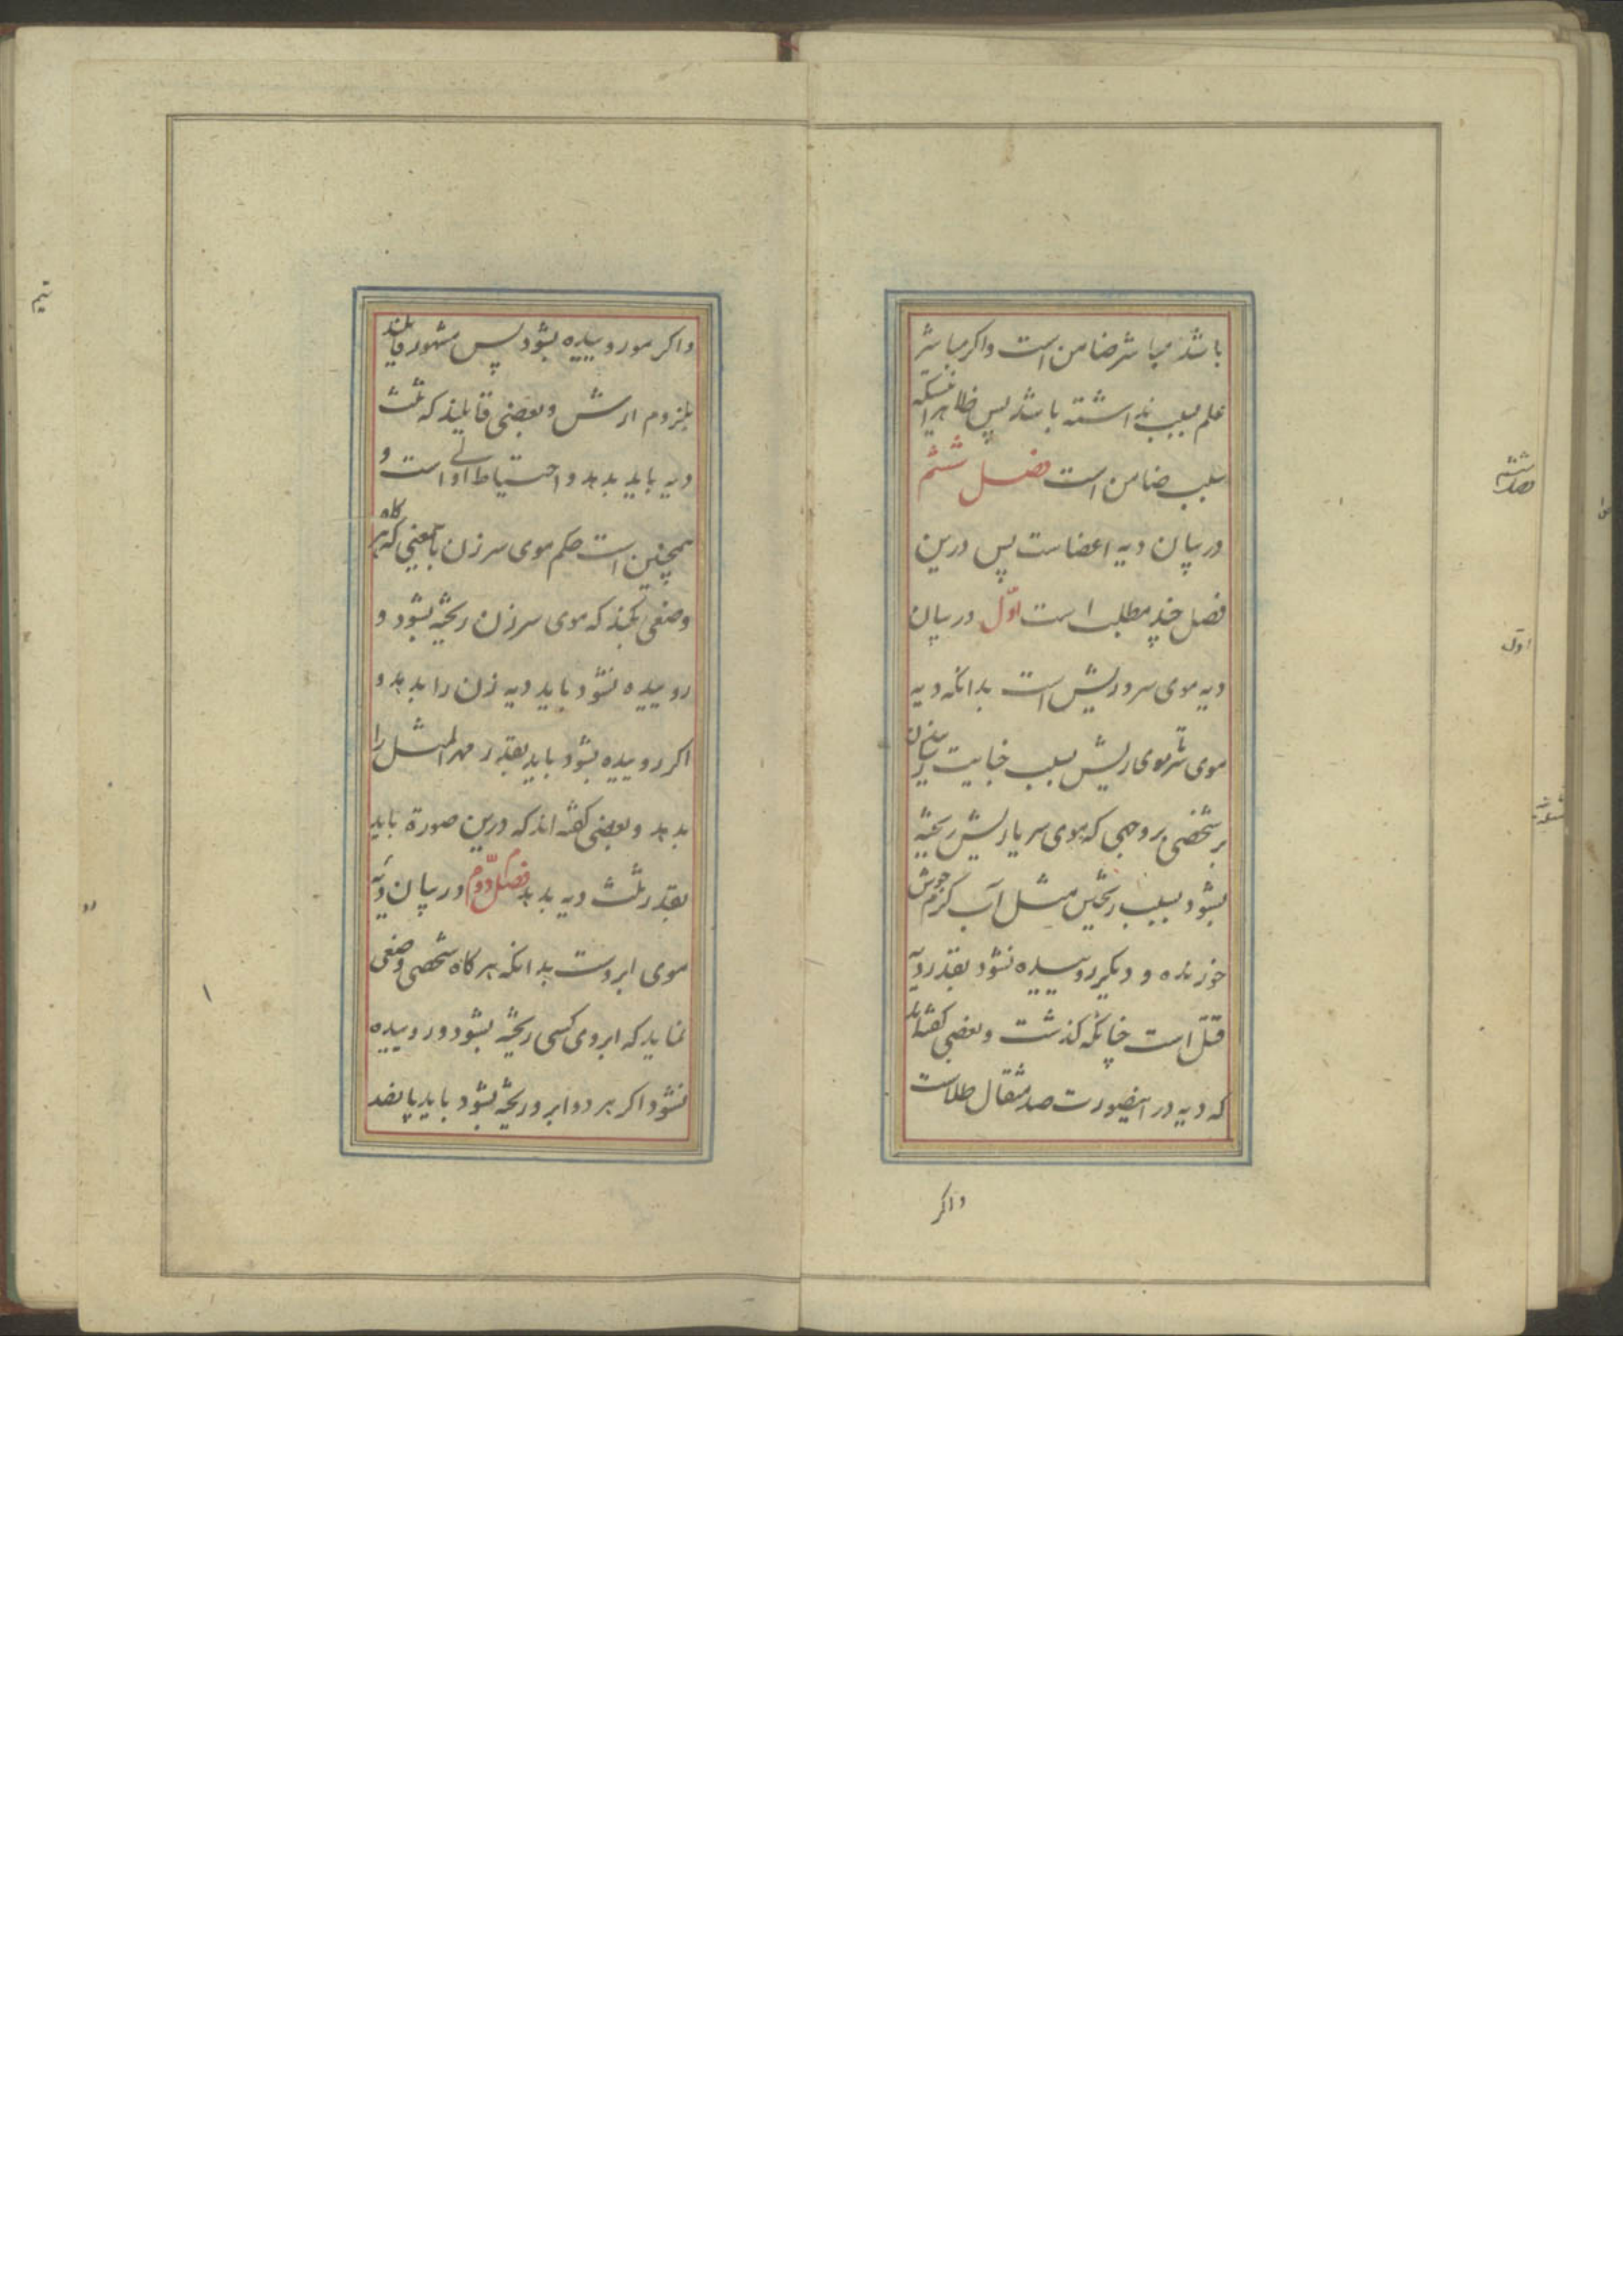 باشد مباشر ضامن است واکر مباشر
علم بسبب نداشته باشد پس ظاهرا اینکه
سبب ضامن است فصل ششم
در بیان دیه اعضاست پس درین
فصل چند مطلب است اوّل در بیان
دیه موی سر و ریش است بدانکه دیه
موی سر موی ریش بسبب جنایت رسانیدن
بر شخصی بر وجهی که موی سر یا ریش ریخته
بشود بسبب ریختن مثل آب کرم جوش
خورنده و دیکر روییده نشود بقدر دیه
قتل است چنانکه کذشت و بعضی کفته‌اند
که دیه در اینصورت صد مثقال طلاست
واکر
واکر مو روییده بشود پس مشهور قایلند
بلزوم ارش و بعضی قایلند که ثلث
دیه باید بدهد و احتیاط اولی است و
همچنین است حکم موی سر زن بامعنی که هر کاه
وصفی بکند که موی سر زن ریخته بشود و
روییده نشود باید دیه زن را بدهد و
اکر روییده بشود باید بقدر مهر المثل را
بدهد و بعضی کفته‌اند که درین صورة باید
بقدر ثلث دیه بدهد فصل دوّم در بیان دیه
موی ابروست بدانکه هر کاه شخصی وصفی
نماید که ابروی کسی ریخته بشود و روییده
نشود اکر هر دو ابرو ریخته بشود باید پانصد
فصل ششم
اوّل